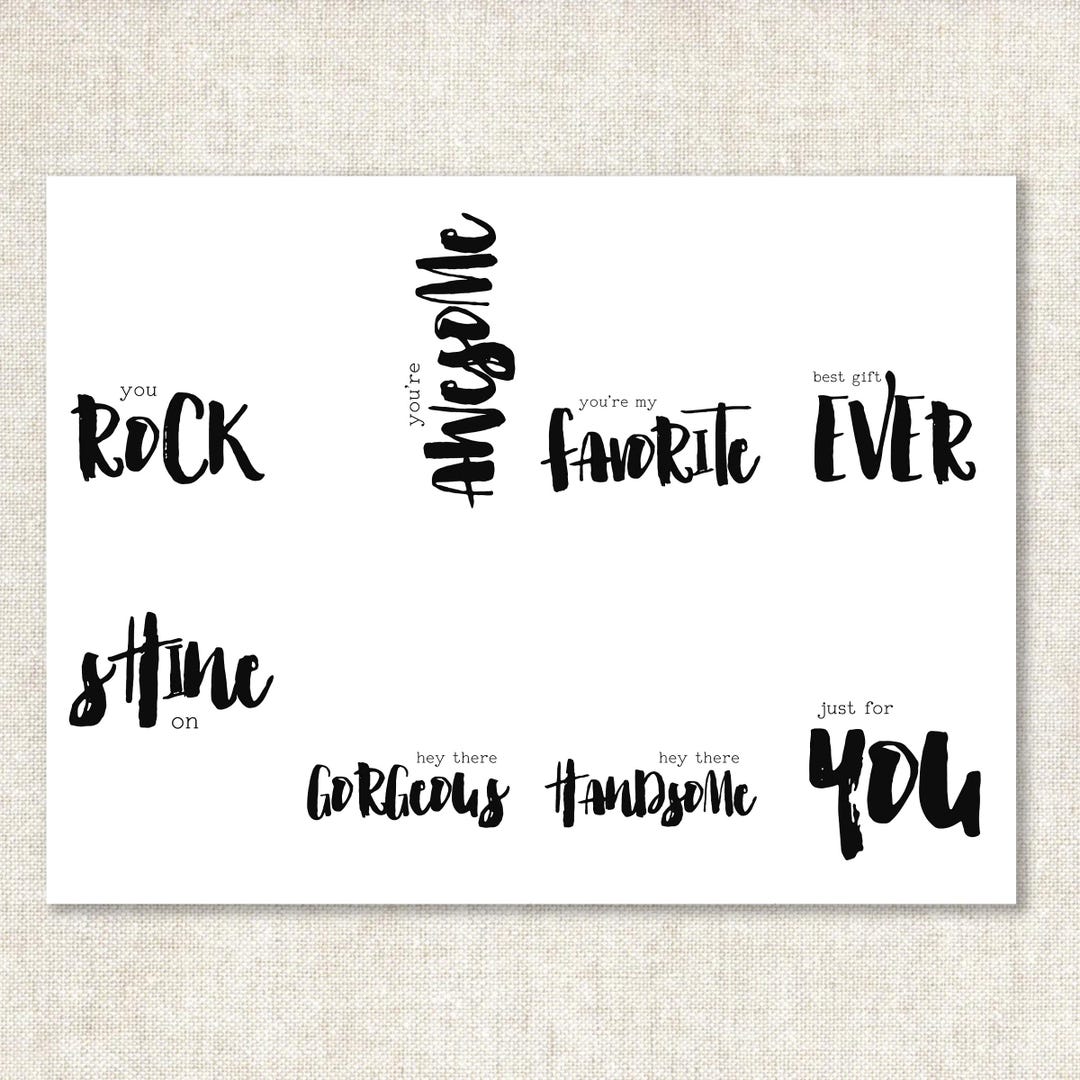 you
RoCK
you're
AWesoMe
you're my
FAvoRITe
best gift
EVER
sHINe
on
hey there
GoRGeous
hey there
HANDsoMe
just for
YOU